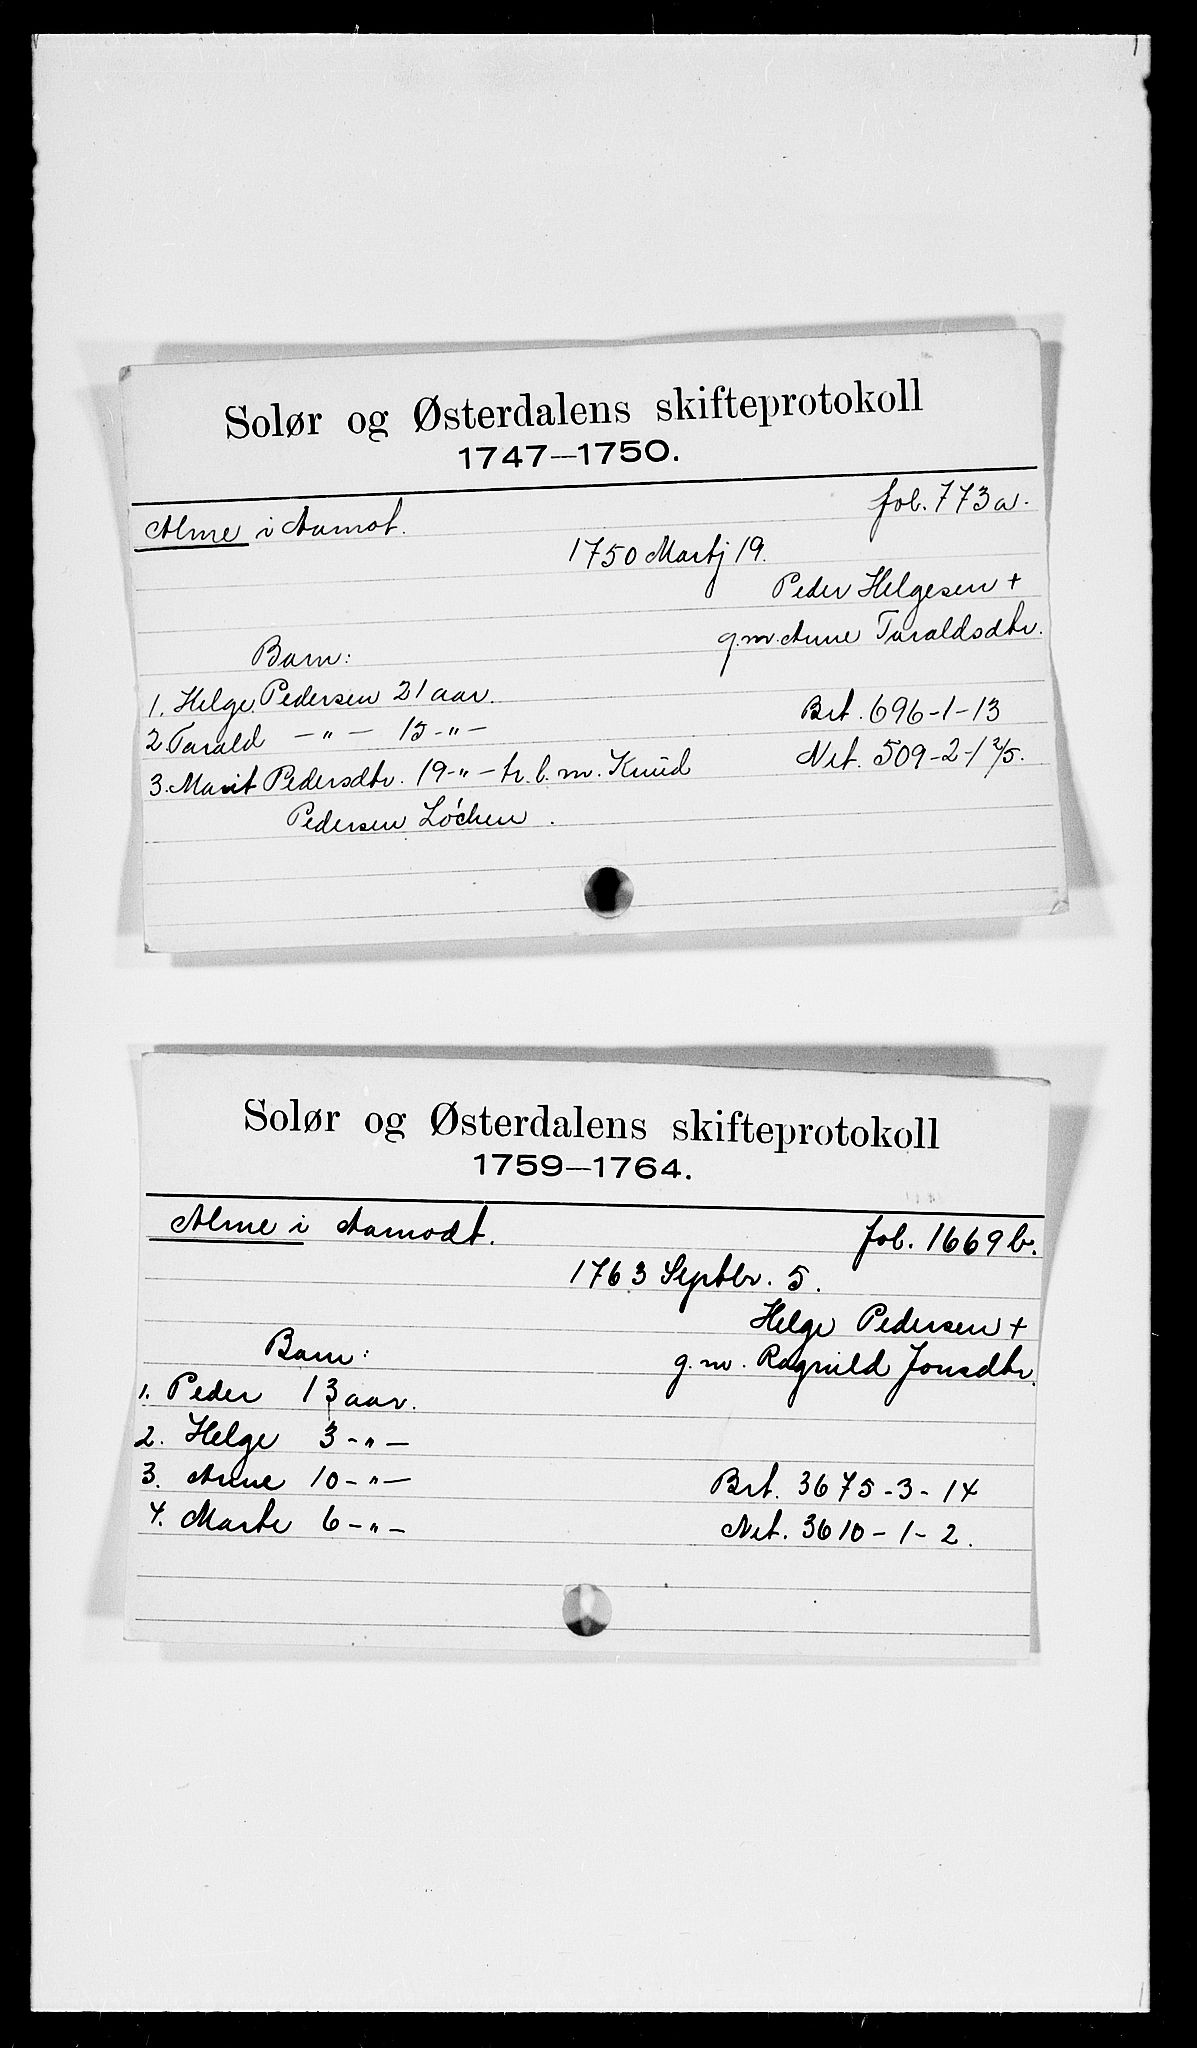 Solør og Østerdalens skifteprotokoll
1747—1750.
Alme i Aamot.
fol. 773a.
1750 Martj 19.
Peder Helgesen +
g.m. Anne Taraldsdtr.
Barn:
1. Helge Pedersen 21 aar.
2. Tarald — " — 15 - " —
3. Marit Pedersdtr. 19 - " — tr. l. m. Knud
Pedersen Løchen.
Brt. 696-1-13
Net. 509-2-1 2/5.
Solør og Østerdalens skifteprotokoll
1759—1764.
Alme i Aamodt.
fol. 1669b.
1763 Septbr. 5.
Helge Pedersen +
g.m. Ragnild Jonsdtr.
Barn:
1. Peder 13 aar.
2. Helge 3 - " —
3. Anne 10 - " —
4. Marte 6 - " —
Brt. 3675-3-14
Net. 3610-1-2.